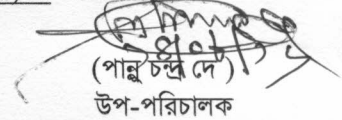 (পান্নু চন্দ্র দে)
উপ-পরিচালক